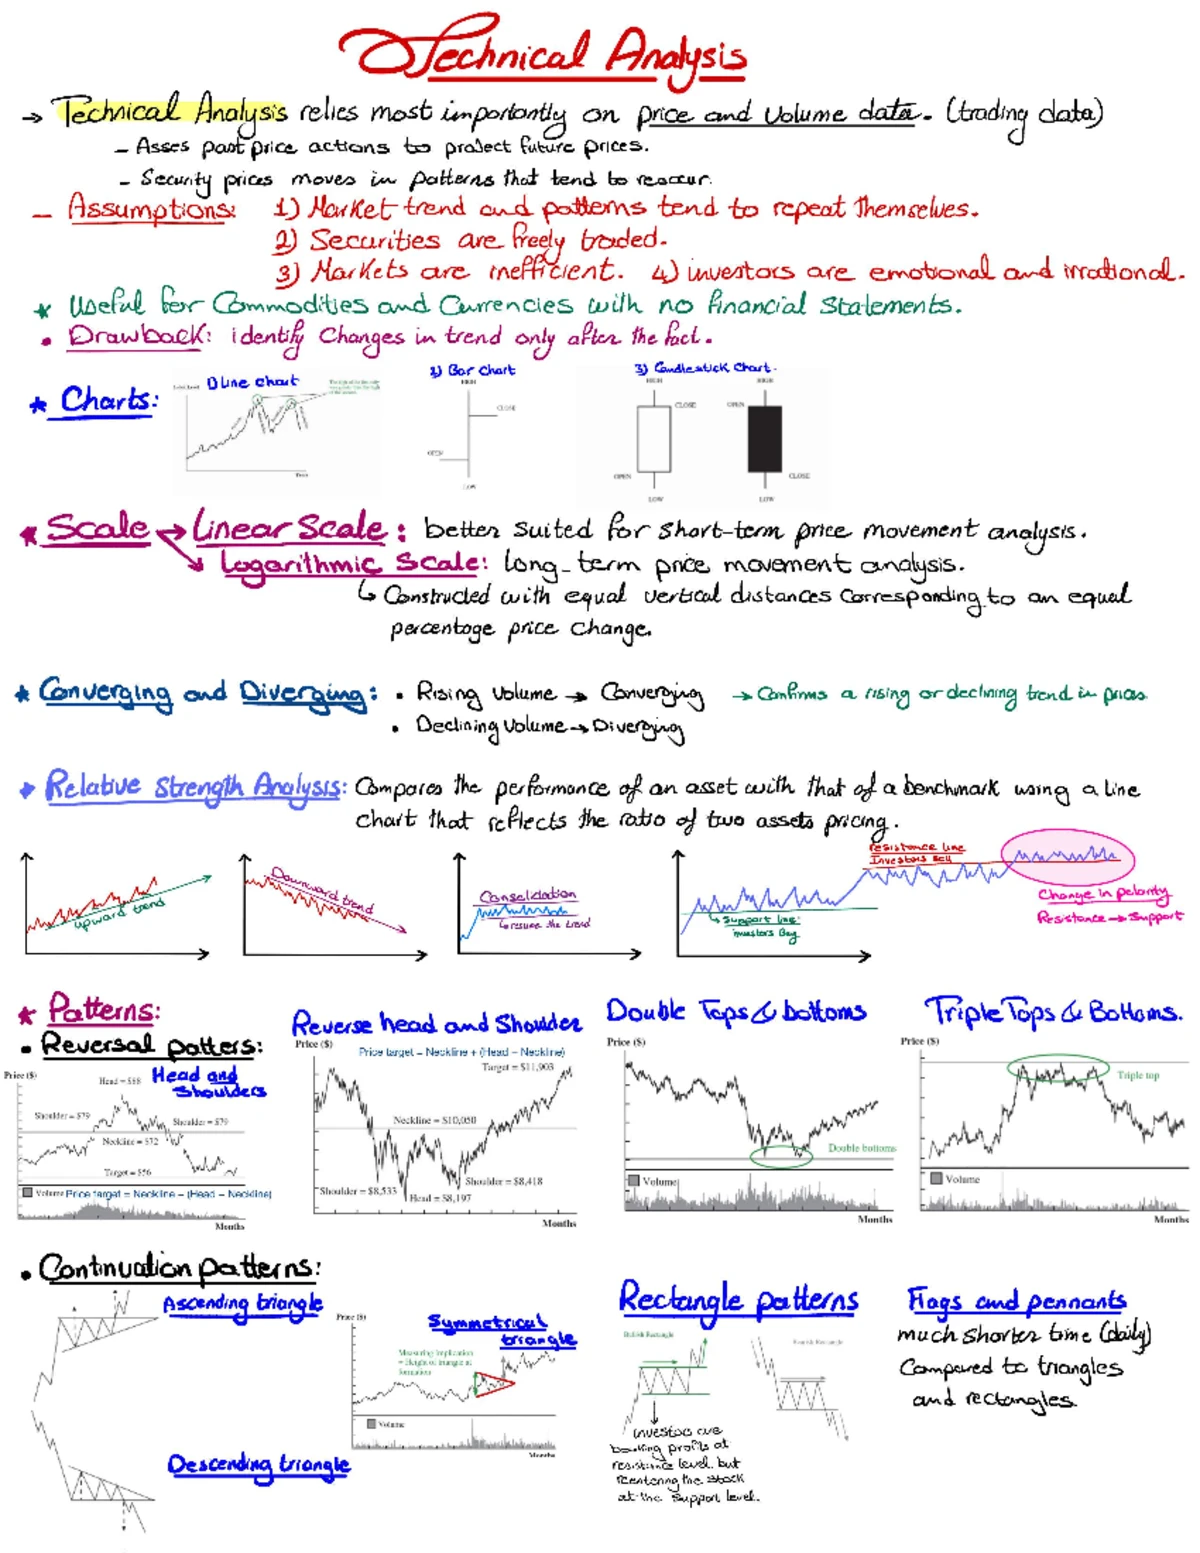 Technical Analysis
→ Technical Analysis relies most importantly on price and volume data. (trading data)
- Asses past price actions to project future prices.
- Security prices moves in patterns that tend to reoccur.
- Assumptions: 1) Market trend and patterns tend to repeat themselves.
2) Securities are freely traded.
3) Markets are inefficient. 4) investors are emotional and irrational.
* Useful for Commodities and Currencies with no financial statements.
• Drawback: identify changes in trend only after the fact.
* Charts:
1) line chart
Time
2) Bar Chart
HIGH
CLOSE
OPEN
LOW
3) Candlestick Chart.
HIGH HIGH
CLOSE OPEN
OPEN CLOSE
LOW LOW
* Scale → Linear Scale: better suited for short-term price movement analysis.
↘ Logarithmic Scale: long-term price movement analysis.
↳ Constructed with equal vertical distances corresponding to an equal
percentage price change.
* Converging and Diverging: • Rising Volume → Converging → Confirms a rising or declining trend in prices
• Declining Volume → Diverging
Relative Strength Analysis: Compares the performance of an asset with that of a benchmark using a line
chart that reflects the ratio of two assets pricing.
upward trend
Downward trend
Consolidation
↳ resume the trend
resistance line
Investors sell
↳ Support line:
investors Buy
Change in polarity
Resistance → Support
* Patterns:
• Reversal patters:
Head and
Shoulders
Price ($)
Head = $88
Shoulder = $79
Shoulder = $79
Neckline = $72
Target = $56
Volume Price target = Neckline - (Head - Neckline)
Months
Reverse head and Shoulder
Price ($)
Price target = Neckline + (Head - Neckline)
Target = $11,903
Neckline = $10,050
Shoulder = $8,533
Head = $8,197
Shoulder = $8,418
Months
Double Tops & bottoms
Price ($)
Double bottoms
Volume
Months
Triple Tops & Bottoms.
Price ($)
Triple top
Volume
Months
• Continuation patterns:
Ascending triangle
Descending triangle
Symmetrical
triangle
Price ($)
Measuring implication
= Height of triangle at
formation
Volume
Months
Rectangle patterns
Bullish Rectangle
Bearish Rectangle
investors are
booking profits at
resistance level but
reentering the stock
at the support level.
Flags and pennants
much shorter time (daily)
Compared to triangles
and rectangles.